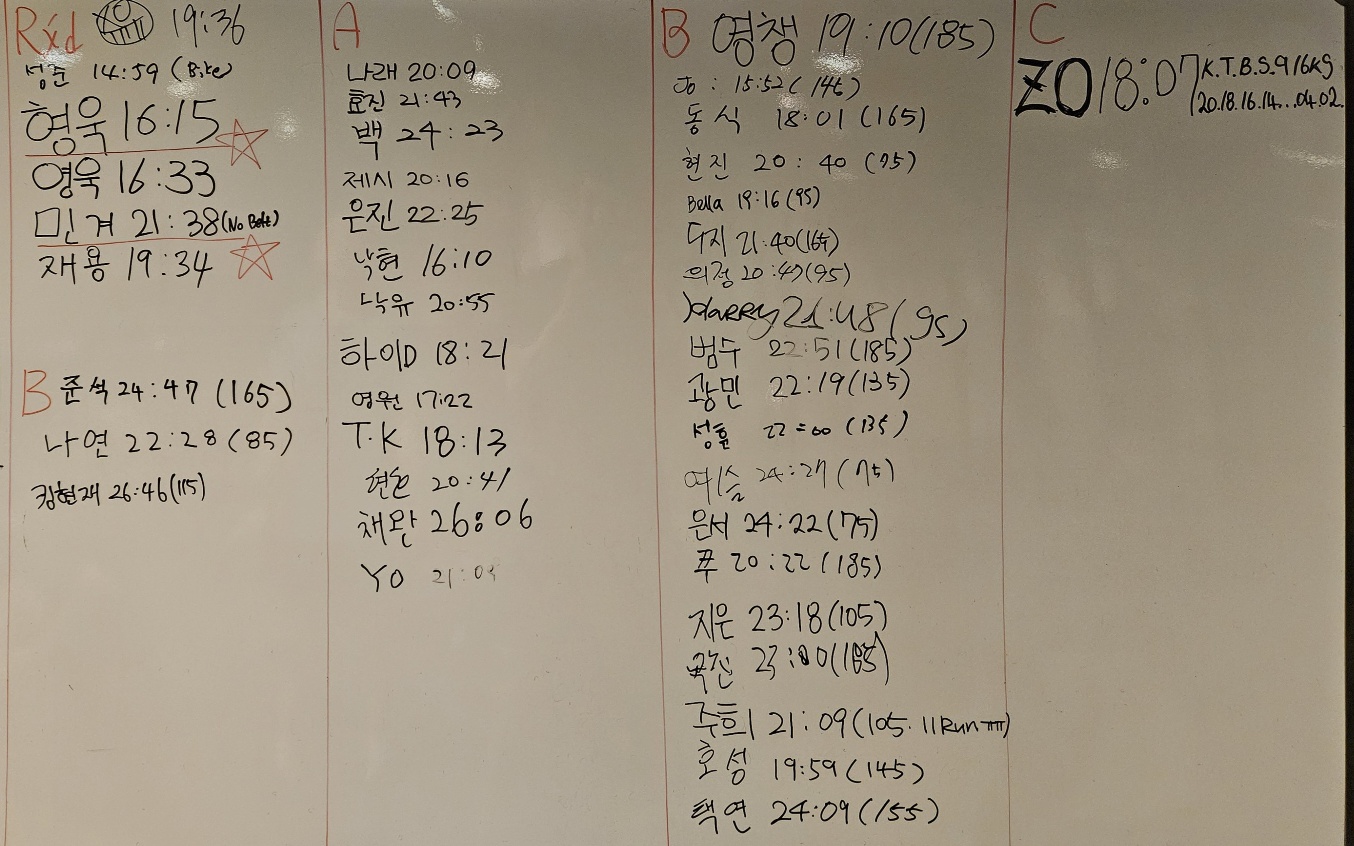 Rx'd 19:36
성준 14:59 (Bike)
형욱 16:15
영욱 16:33
민겨 21:38 (No Belt)
재용 19:34
B 준석 24:47 (165)
나연 22:28 (85)
킹현재 26:46 (115)
A
나래 20:09
효진 21:43
백 24:23
제시 20:16
은진 22:25
낙현 16:10
낙유 20:55
하이D 18:21
영원 17:22
T.K 18:13
20:41
채완 26:06
YO 21:
B 영챙 19:10 (185)
Jo : 15:52 (145)
동식 18:01 (165)
현진 20:40 (75)
Bella 19:16 (95)
두지 21:40 (165)
의정 20:47 (95)
Harry 21:48 (95)
범수 22:51 (185)
광민 22:19 (135)
성훈 22:00 (135)
예슴 24:27 (75)
은서 24:22 (75)
푸 20:22 (185)
지은 23:18 (105)
23:00
주희 21:09 (105. 11Run ㅠㅠ)
호성 19:59 (145)
택연 24:09 (155)
C
ZO 18:07 K.T.B.S.9 16KG
20.18.16.14...04.02.